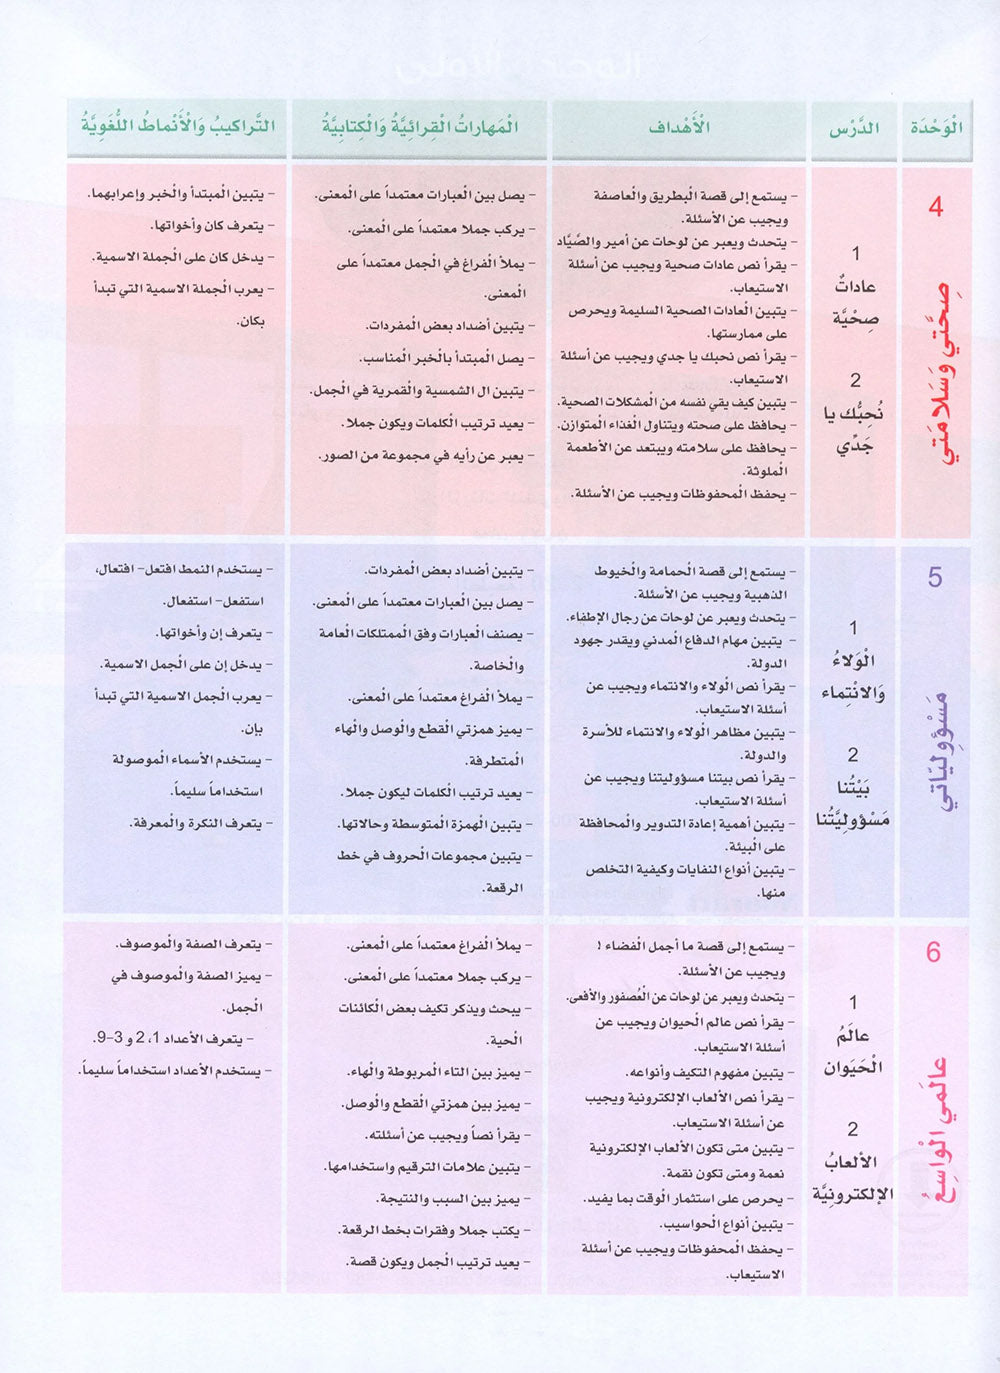 الْوَحْدَة
الدَّرْس
الْأَهْداف
الْمَهاراتُ الْقِرائِيَّةُ وَالْكِتابِيَّةُ
التَّراكيبُ وَالْأَنْماطُ اللُّغَوِيَّةُ
4
صِحَّتي وَسَلامَتي
1
عاداتٌ
صِحْيَّة
2
نُحِبُّك يا
جَدِّي
- يستمع إلى قصة الْبطريق والْعاصفة
ويجيب عن الأسئلة.
- يتحدث ويعبر عن لوحات عن أمير والصَّيَّاد
- يقرأ نص عادات صحية ويجيب عن أسئلة
الاستيعاب.
- يتبين الْعادات الصحية السليمة ويحرص
على ممارستها.
- يقرأ نص نحبك يا جدي ويجيب عن أسئلة
الاستيعاب.
- يتبين كيف يقي نفسه من الْمشكلات الصحية.
- يحافظ على صحته ويتناول الْغذاء الْمتوازن.
- يحافظ على سلامته ويبتعد عن الأطعمة
الْملوثة.
- يحفظ الْمحفوظات ويجيب عن الأسئلة.
- يصل بين الْعبارات معتمداً على الْمعنى.
- يركب جملا معتمداً على الْمعنى.
- يملأ الْفراغ في الْجمل معتمداً على
الْمعنى.
- يتبين أضداد بعض الْمفردات.
- يصل الْمبتدأ بالْخبر الْمناسب.
- يتبين ال الشمسية والْقمرية في الْجمل.
- يعيد ترتيب الْكلمات ويكون جملا.
- يعبر عن رأيه في مجموعة من الصور.
- يتبين الْمبتدأ والْخبر وإعرابهما.
- يتعرف كان وأخواتها.
- يدخل كان على الْجملة الاسمية.
- يعرب الْجملة الاسمية التي تبدأ
بكان.
5
مَسْؤولِيّاتي
1
الْوَلاءُ
وَالانْتِماء
2
بَيْتُنا
مَسْؤولِيَّتُنا
- يستمع إلى قصة الْحمامة والْخيوط
الذهبية ويجيب عن الأسئلة.
- يتحدث ويعبر عن لوحات عن رجال الإطفاء.
- يتبين مهام الدفاع الْمدني ويقدر جهود
الدولة.
- يقرأ نص الْولاء والانتماء ويجيب عن
أسئلة الاستيعاب.
- يتبين مظاهر الْولاء والانتماء للأسرة
والدولة.
- يقرأ نص بيتنا مسؤوليتنا ويجيب عن
أسئلة الاستيعاب.
- يتبين أهمية إعادة التدوير والْمحافظة
على الْبيئة.
- يتبين أنواع النفايات وكيفية التخلص
منها.
- يتبين أضداد بعض الْمفردات.
- يصل بين الْعبارات معتمداً على الْمعنى.
- يصنف الْعبارات وفق الْممتلكات الْعامة
والْخاصة.
- يملأ الْفراغ معتمداً على الْمعنى.
- يميز همزتي الْقطع والْوصل والْهاء
الْمتطرفة.
- يعيد ترتيب الْكلمات ليكون جملا.
- يتبين الْهمزة الْمتوسطة وحالاتها.
- يتبين مجموعات الْحروف في خط
الرقعة.
- يستخدم النمط افتعل- افتعال،
استفعل- استفعال.
- يتعرف إن وأخواتها.
- يدخل إن على الْجمل الاسمية.
- يعرب الْجمل الاسمية التي تبدأ
بإن.
- يستخدم الأسماء الْموصولة
استخداماً سليماً.
- يتعرف النكرة والْمعرفة.
6
عالَمي الْواسِعُ
1
عالَمُ
الْحَيَوان
2
الألعابُ
الإلكترونِيَّة
- يستمع إلى قصة ما أجمل الْفضاء !
ويجيب عن الأسئلة.
- يتحدث ويعبر عن لوحات عن الْعُصفور والأفعى.
- يقرأ نص عالم الْحيوان ويجيب عن
أسئلة الاستيعاب.
- يتبين مفهوم التكيف وأنواعه.
- يقرأ نص الألعاب الإلكترونية ويجيب
عن أسئلة الاستيعاب.
- يتبين متى تكون الألعاب الإلكترونية
نعمة ومتى تكون نقمة.
- يحرص على استثمار الْوقت بما يفيد.
- يتبين أنواع الْحواسيب.
- يحفظ الْمحفوظات ويجيب عن أسئلة
الاستيعاب.
- يملأ الْفراغ معتمداً على الْمعنى.
- يركب جملا معتمداً على الْمعنى.
- يبحث ويذكر تكيف بعض الْكائنات
الْحية.
- يميز بين التاء الْمربوطة والْهاء.
- يميز بين همزتي الْقطع والْوصل.
- يقرأ نصاً ويجيب عن أسئلته.
- يتبين علامات الترقيم واستخدامها.
- يميز بين السبب والنتيجة.
- يكتب جملا وفقرات بخط الرقعة.
- يعيد ترتيب الْجمل ويكون قصة.
- يتعرف الصفة والْموصوف.
- يميز الصفة والْموصوف في
الْجمل.
- يتعرف الأعداد 1، 2 و 3-9.
- يستخدم الأعداد استخداماً سليماً.